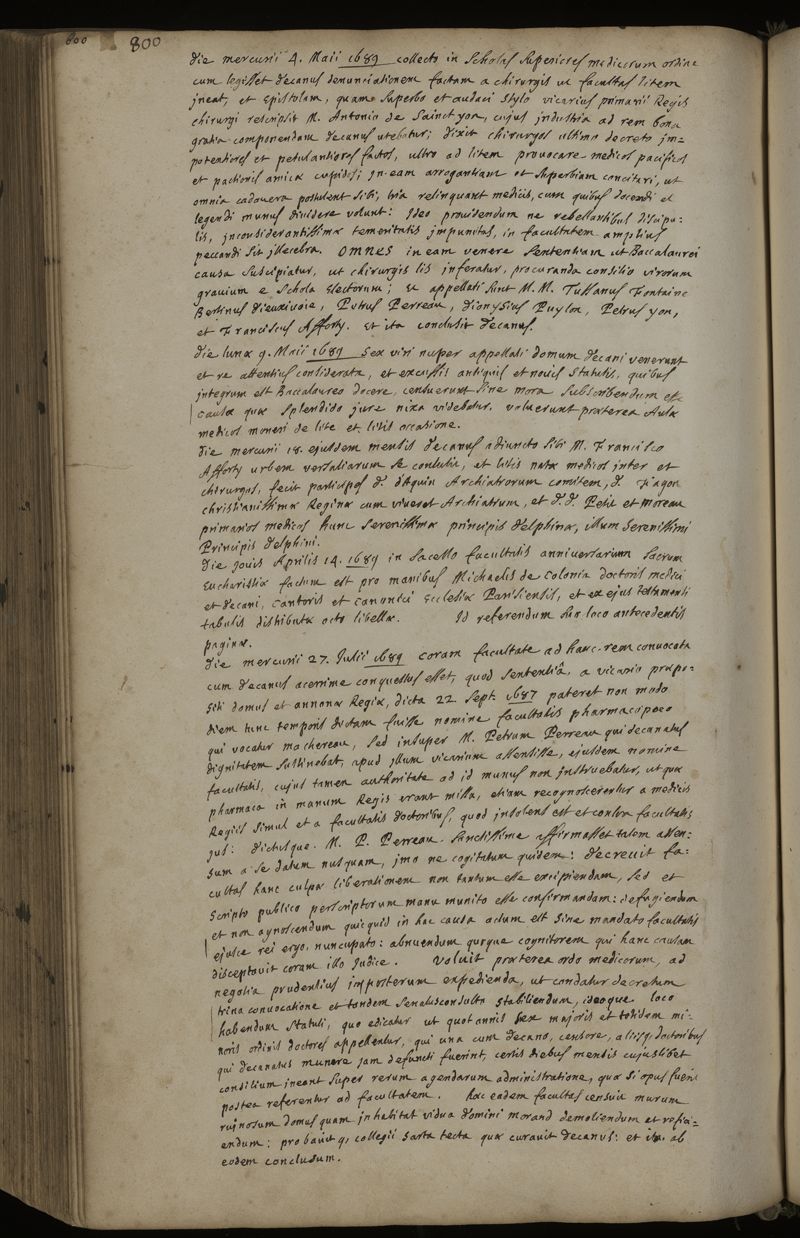 600 800
Die mercurii 4. Maii 1689 collecto in Scholas Superiores medicorum ordine
cum legisset decanus denunciationem factam a chirurgis ut facultas litem
jneat, et epistolam, quam superbo et audaci stylo vicarius primarii Regis
chirurgi rescripsit M. Antonio de Sainctyon, cujus jndustria ad rem bona
gratia componendam decanus utebatur; dixit chirurgos ultimo decreto jm-
potentiores et petulantiores factos, ultro ad litem provocare medicos pacificos
et pactionis amicæ cupidos; jn eam arrogantiam et superbiam concitari, ut
omnia cadavera postulent sibi, tria relinquant medicis, cum quibus docendi et
legendi munus dividere volunt: Ideo providendum ne rebellantibus discipu-
lis, jnconsiderantissimæ temeritatis jmpunitas, in facultatem amplius
peccandi sit jllecebra. OMNES in eam venere sententiam ut Baccalaurei
causa suscipiatur, ut chirurgis lis jnferatur, procuranda consilio virorum
gravium e Schola electorum; et appellati sunt M.M. Tussanus Fontaine
Bertinus Dieuxivoie, Petrus Perreau, Dionysius Puylon, Petrus yon,
et Franciscus Afforty. et ita conclusit Decanus.
Die lunæ 9. Maii 1689 sex viri nuper appellati domum decani venerunt
et re attentius considerata, et excussis antiquis et novis statutis, quibus
jntegrum est Baccalaureo docere, censuerunt sine mora subscribendum esse
causæ quæ splendido jure nixa videbatur. voluerunt præterea Aulæ
medicos moneri de lite et litis occasione.
Die mercurii 18. ejusdem mensis Decanus adjuncto sibi M. Francisco
Afforty urbem versaliarum se contulit, et litis natæ medicos jnter et
chirurgos, fecit participes D. d'Aquin Archiatrorum comitem, D. Fagon
christianissimæ Reginæ cum viveret Archiatrum, et D.D. Petit et Moreau
primarios medicos hunc serenissimæ principis delphinæ, illum serenissimi
Principis delphini.
Die jovis Aprilis 14. 1689 in Sacello facultatis anniversarium sacrum
Eucharistiæ factum est pro manibus Michaelis de Colonia doctoris medici
et decani, cantoris et canonici Ecclesiæ Parisiensis, et ex ejus testamenti
tabulis distributæ octo libellæ. Id referendum suo loco antecedentis
paginæ.
Die mercurii 27. Julii 1689 coram facultate ad hanc rem convocata
cum decanus acerrime conquestus esset, quod sententiâ, a vicario præpo-
siti domus et annonæ Regiæ, dicta 22 Sept. 1687 pateret non modo
diem tunc temporis dictam fuisse nomine facultatis pharmacopoeo
qui vocatur Machereau, sed insuper M. Petrum Perreau qui decanatus
dignitatem sustinebat, apud jllum vicarium assensisse, ejusdem nomine
facultatis, cujus tamen authoritate ad id munus non jnstruebatur, ut quæ
pharmaca in manum Regis erant missa, etiam recognoscerentur a medicis
Regiis simul et a facultatis doctoribus, quod jnsolens est et contra facultatis
jus: dictusque M. P. Perreau sanctissime affirmasset talem assen-
sum a se datum nusquam, jmo ne cogitatum quidem: decrevit fa-
cultas hanc culpæ liberationem non tantum esse excipiendam, sed et
scripto publico perscriptorum manu munito esse confirmandam: defugiendum
et non agnoscendum quicquid in hac causa actum est sine mandato facultatis
ejusce rei ergo, nuncupato: abnuendum cognitorem qui hanc causam
disceptavit coram illo Judice. Voluit præterea ordo medicorum, ad
negotia prudentius jmposterum expedienda, ut condatur decretum
trina convocatione et tandem senatusconsulto stabiliendum, ideoque loco
habendum statuti, quo edicatur ut quotannis sex majoris et totidem mi-
noris ordinis doctores appellentur, qui una cum decano, censore, aliisq; doctoribus
qui decanatus munere jam defuncti fuerint, certis diebus mensis cujuslibet
consilium jneant super rerum agendarum administratione, quæ si opus fuerit
postea referentur ad facultatem. hæc eadem facultas censuit murum
ruinosum domus quam jnhabitat vidua domini Morand demoliendum et refici-
endum: probavit q; collegii sarta tecta quæ curavit decanus: et ita ab
eodem conclusum.